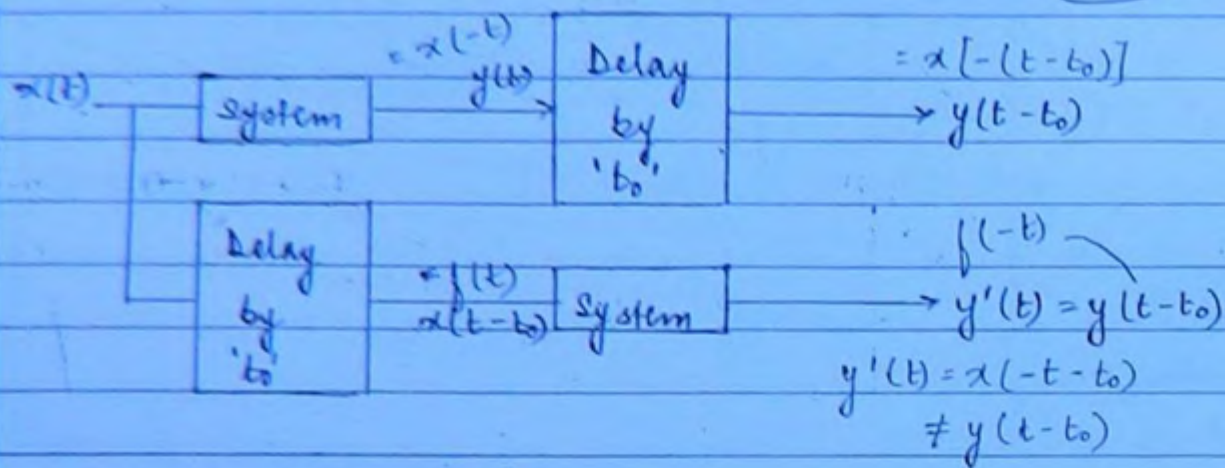 x(t)
System
= x(-t)
y(t)
Delay
by
'to'
= x[-(t-to)]
y(t-to)
Delay
by
'to'
= f(t)
x(t-to)
System
f(-t)
y'(t) = y(t-to)
y'(t) = x(-t-to)
≠ y(t-to)